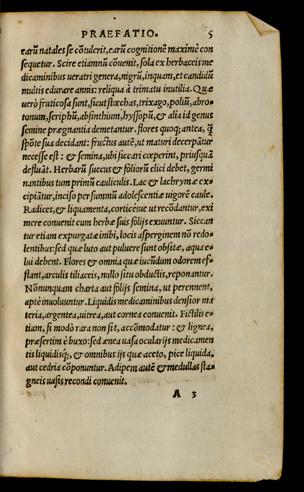 PRAEFATIO. 5
earũ natales se cõtulerit, earũ cognitionẽ maximè con
sequetur. Scire etiamnũ cõuenit, sola ex herbaceis me
dicaminibus ueratri genera, nigrũ, inquam, et candidũ
multis edurare annis: reliqua à trimatu inutilia. Quæ
uerò fruticosa sunt, sicut stœchas, trixago, poliũ, abro-
tonum, seriphũ, absinthium, hyssopũ, & alia id genus
semine prægnantia demetantur. flores quoq; anteà, q̃
spõte sua decidant: fructus autẽ, ut maturi decerpãtur
necesse est: & semina, ubi siccari cœperint, priusquã
defluãt. Herbarũ succus & foliorũ elici debet, germi
nantibus tum primũ cauliculis. Lac & lachrymæ ex-
cipiãtur, inciso per summũ adolescentiæ uigorẽ caule.
Radices, & liquamenta, corticésue ut recõdantur, exi
mere conuenit cum herbæ suis folijs exuuntur. Siccan
tur etiam expurgatæ inibi, locis asperginem nõ redo-
lentibus: sed quæ luto aut puluere sunt obsitæ, aqua e-
lui debent. Flores & omnia quæ iucũdum odorem ef-
flant, arculis tiliaceis, nullo situ obductis, reponantur.
Nõnunquam charta aut folijs semina, ut perennent,
aptè inuoluuntur. Liquidis medicaminibus densior ma
teria, argentea, uitrea, aut cornea conuenit. Fictilis e-
tiam, si modò rara non sit, accõmodatur: & lignea,
præsertim è buxo: sed ænea uasa ocularijs medicamen
tis liquidisq́;, & omnibus ijs quæ aceto, pice liquida,
aut cedria cõponuntur. Adipem autẽ & medullas sta-
gneis uasis recondi conuenit.
A 3